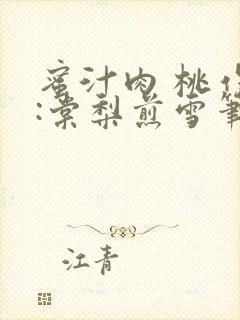 蜜汁肉桃作
:棠梨煎雪筆
江青